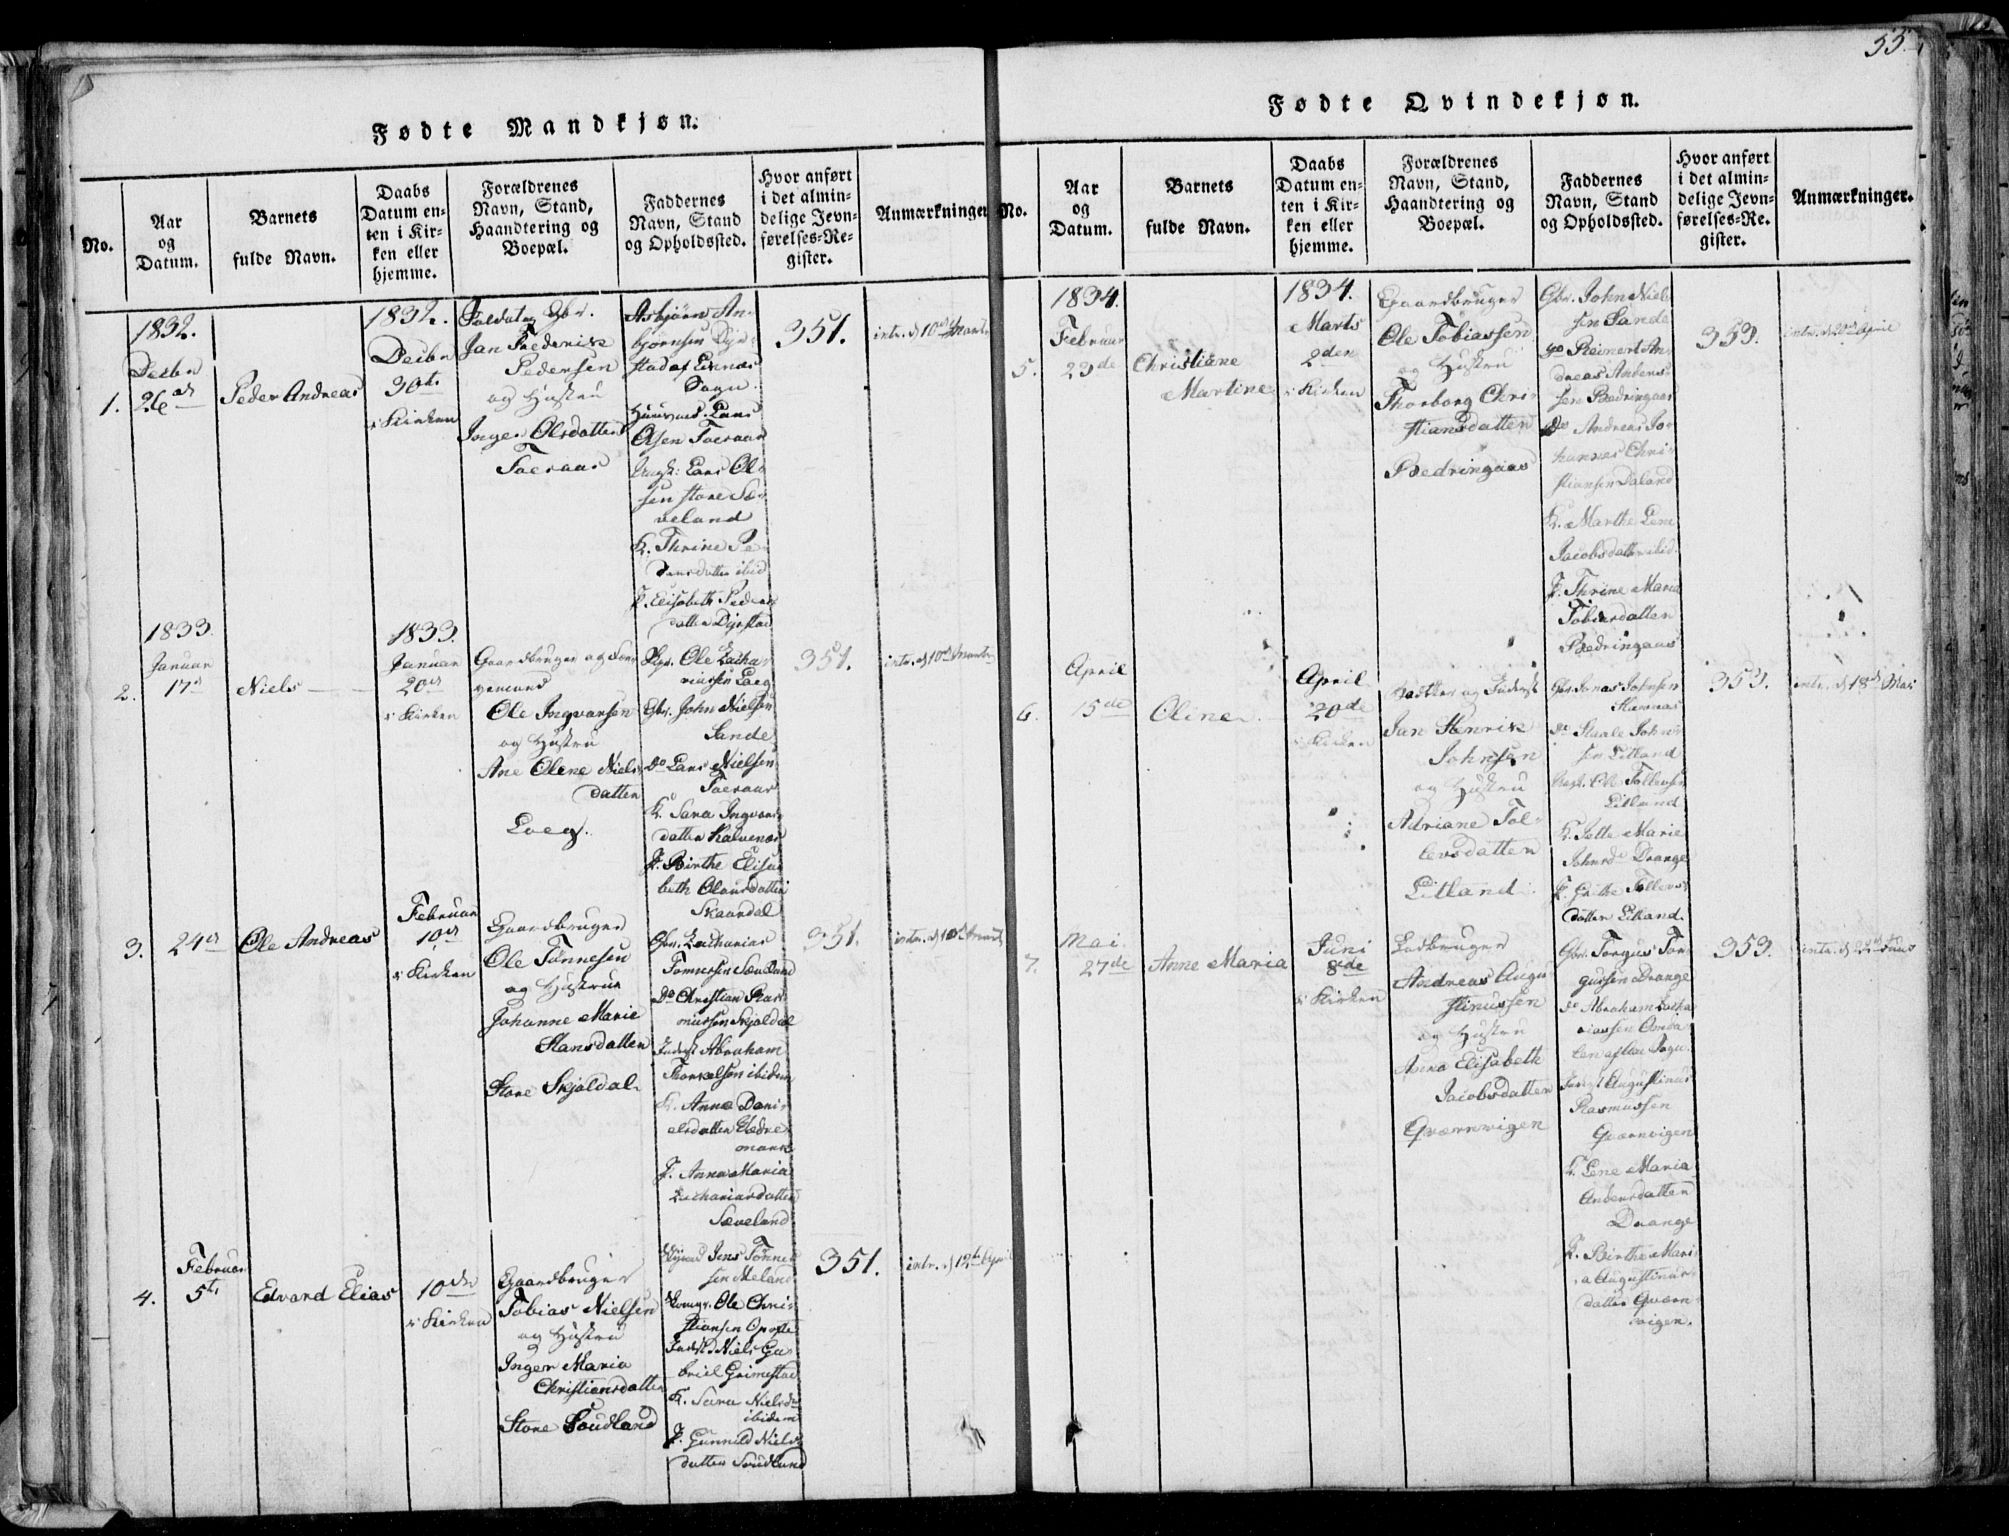 55.
Fødte Mandkjøn.
No.
Aar
og
Datum.
Barnets
fulde Navn.
Daabs
Datum en-
ten i Kir-
ken eller
hjemme.
Forældrenes
Navn, Stand,
Haandtering og
Boepæl.
Faddernes
Navn, Stand
og Opholdssted.
Hvor anført
i det almin-
delige Jevn-
førelses-Re-
gister.
Anmærkninger
1832.
Decbr
1. 26de
Peder Andreas
1832.
Decbr
30te
i Kirken
Soldat og Gbr.
Jan Frederik
Pedersen
og Hustru
Inger Olsdatter
Foeraas
Asbjørn As-
bjørnsen
stad af
Sogn
Lars
Olsen Foeraas
Ungk: Lars Ol-
sen store Sæ-
veland
K. Thrine Pe-
dersdatter ibid
P. Elisabeth Peders
datter
351.
intr. d 10de Marts
1833.
Januar
2. 17de
Niels
1833.
Januar
20de
i Kirken
Gaardbruger og
Ole Ingvarsen
og Hustru
Ane Olene Niels
datter
Loeg.
Ole Zacha-
riassen Loeg
Gbr. John Nielsen
Sande
do Lars Nielsen
Foeraas
K. Sara Ingvars
datter
P. Birthe Elisa
beth Olausdatter
Skaardal
351.
intr. d 10de Marts
3. 24de
Ole Andreas
Februar
10de
i Kirken
Gaardbruger
Ole Tønnesen
og Hustru
Johanne Marie
Hansdatter
Store Skjoldal
Gbr. Zacharias
Tønnesen Sæveland
do Christian Ras-
mussen Skjoldal
Inderst Abraham
Thorkelsen ibidem
K. Anna Dani-
elsdatter
P. Anna Maria
Zachariasdatter
Sæveland
351.
intr. d 10de Marts
Februar
4. 5te
Edvard Elias
10de
i Kirken
Gaardbruger
Tobias Nielsen
og Hustru
Inger Maria
Christiansdatter
Store Soudland
Jens Tønne
sen Meland
Ole Chri-
stiansen
Niels Ga-
briel Grimestad
K. Sara Nielsd
ibidem
P. Gunnild Niels
datter Soudland
351.
intr. d 12te
Fødte Qvindekjøn.
No.
Aar
og
Datum.
Barnets
fulde Navn.
Daabs
Datum en-
ten i Kir-
ken eller
hjemme.
Forældrenes
Navn, Stand,
Haandtering og
Boepæl.
Faddernes
Navn, Stand
og Opholdssted.
Hvor anført
i det almin-
delige Jevn-
førelses-Re-
gister.
Anmærkninger.
1834.
Februar
5. 23de
Christiane
Martine
1834.
Marts
2den
i Kirken
Gaardbruger
Ole Tobiassen
og Hustru
Thorborg Chri-
stiansdatter
Bedringaas
Gbr. John Niel-
sen Sande
do Reinert An-
dreas Anders-
sen Bedringaas
do Andreas Jo-
hannes Chri-
stiansen Daland
K. Marthe Lene
Jacobsdatter ibid
P. Thrine Maria
Tobiasdatter
Bedringaas
353.
intr. d 20de April
April
6. 15de
Oline
April
20de
i Kirken
Jan Henrik
Johnsen
og Hustru
Adriane Tol-
levsdatter
Litland
Gbr. Jonas Johnsen
do Staale John-
sen Litland
Ungk. Ole Tollevsen
Litland
K. Jette Marie
Johnsd. Drange
P. Tollevs
datter Litland
353.
intr. d 18de Mai
Mai
7. 27de
Anne Maria
Juni
8de
i Kirken
Andreas Augu-
stinussen
og Hustru
Anna Elisabeth
Jacobsdatter
Qværnvigen
Gbr. Torgus Tor-
gussen Drange
do Abraham Zacha
riassen
Inderst Augustinus
Rasmussen
Qværnvigen
K. Lene Maria
Drange
P. Birthe Mari-
a Augustinus
datter Qværn
vigen.
353.
intr. d 22de Juni